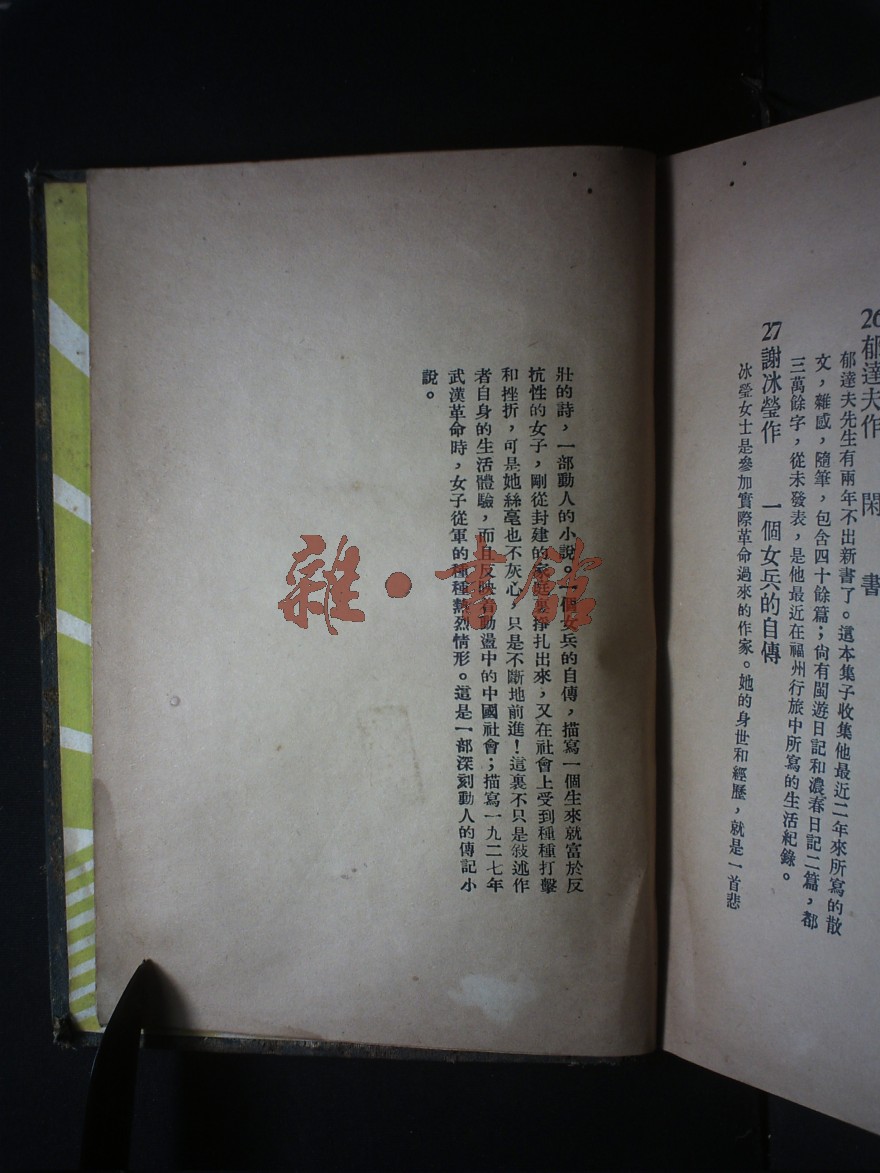 26郁達夫作　閑　書
郁達夫先生有兩年不出新書了。這本集子收集他最近二年來所寫的散
文，雜感，隨筆，包含四十餘篇；尙有閩遊日記和濃春日記二篇，都
三萬餘字，從未發表，是他最近在福州行旅中所寫的生活紀錄。
27謝冰瑩作　一個女兵的自傳
冰瑩女士是參加實際革命過來的作家。她的身世和經歷，就是一首悲
壯的詩，一部動人的小說。一個女兵的自傳，描寫一個生來就富於反
抗性的女子，剛從封建的家庭裏掙扎出來，又在社會上受到種種打擊
和挫折，可是她絲毫也不灰心，只是不斷地前進！這裏不只是敍述作
者自身的生活體驗，而且反映着動盪中的中國社會；描寫一九二七年
武漢革命時，女子從軍的種種熱烈情形。這是一部深刻動人的傳記小
說。
雜·書館